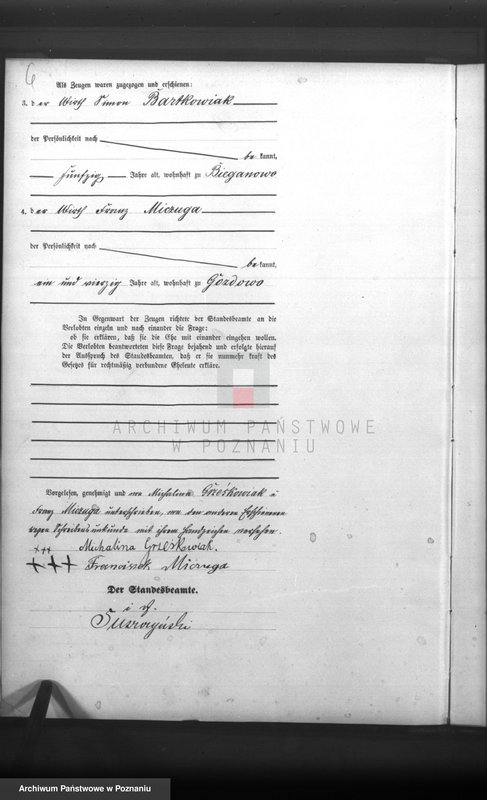 6
Als Zeugen waren zugezogen und erschienen:
3. der Wirth Simon Bartkowiak
der Persönlichkeit nach
bekannt,
fünfzig Jahre alt, wohnhaft zu Bieganowo
4. der Wirth Franz Miczuga
der Persönlichkeit nach
bekannt,
ein und vierzig Jahre alt, wohnhaft zu Gozdowo
In Gegenwart der Zeugen richtete der Standesbeamte an die
Verlobten einzeln und nach einander die Frage:
ob sie erklären, daß sie die Ehe mit einander eingehen wollen.
Die Verlobten beantworteten diese Frage bejahend und erfolgte hierauf
der Ausspruch des Standesbeamten, daß er sie nunmehr kraft des
Gesetzes für rechtmäßig verbundene Eheleute erkläre.
ARCHIWUM PAŃSTWOWE
W POZNANIU
Vorgelesen, genehmigt und von Michalina Grześkowiak u
Franz Miczuga unterschrieben, von den anderen Erschienenen
wegen Schreibensunkunde mit ihrem Handzeichen versehen.
+++ Michalina Grześkowiak.
+++ Franciszek Miczuga
Der Standesbeamte.
i. V.
Archiwum Państwowe w Poznaniu